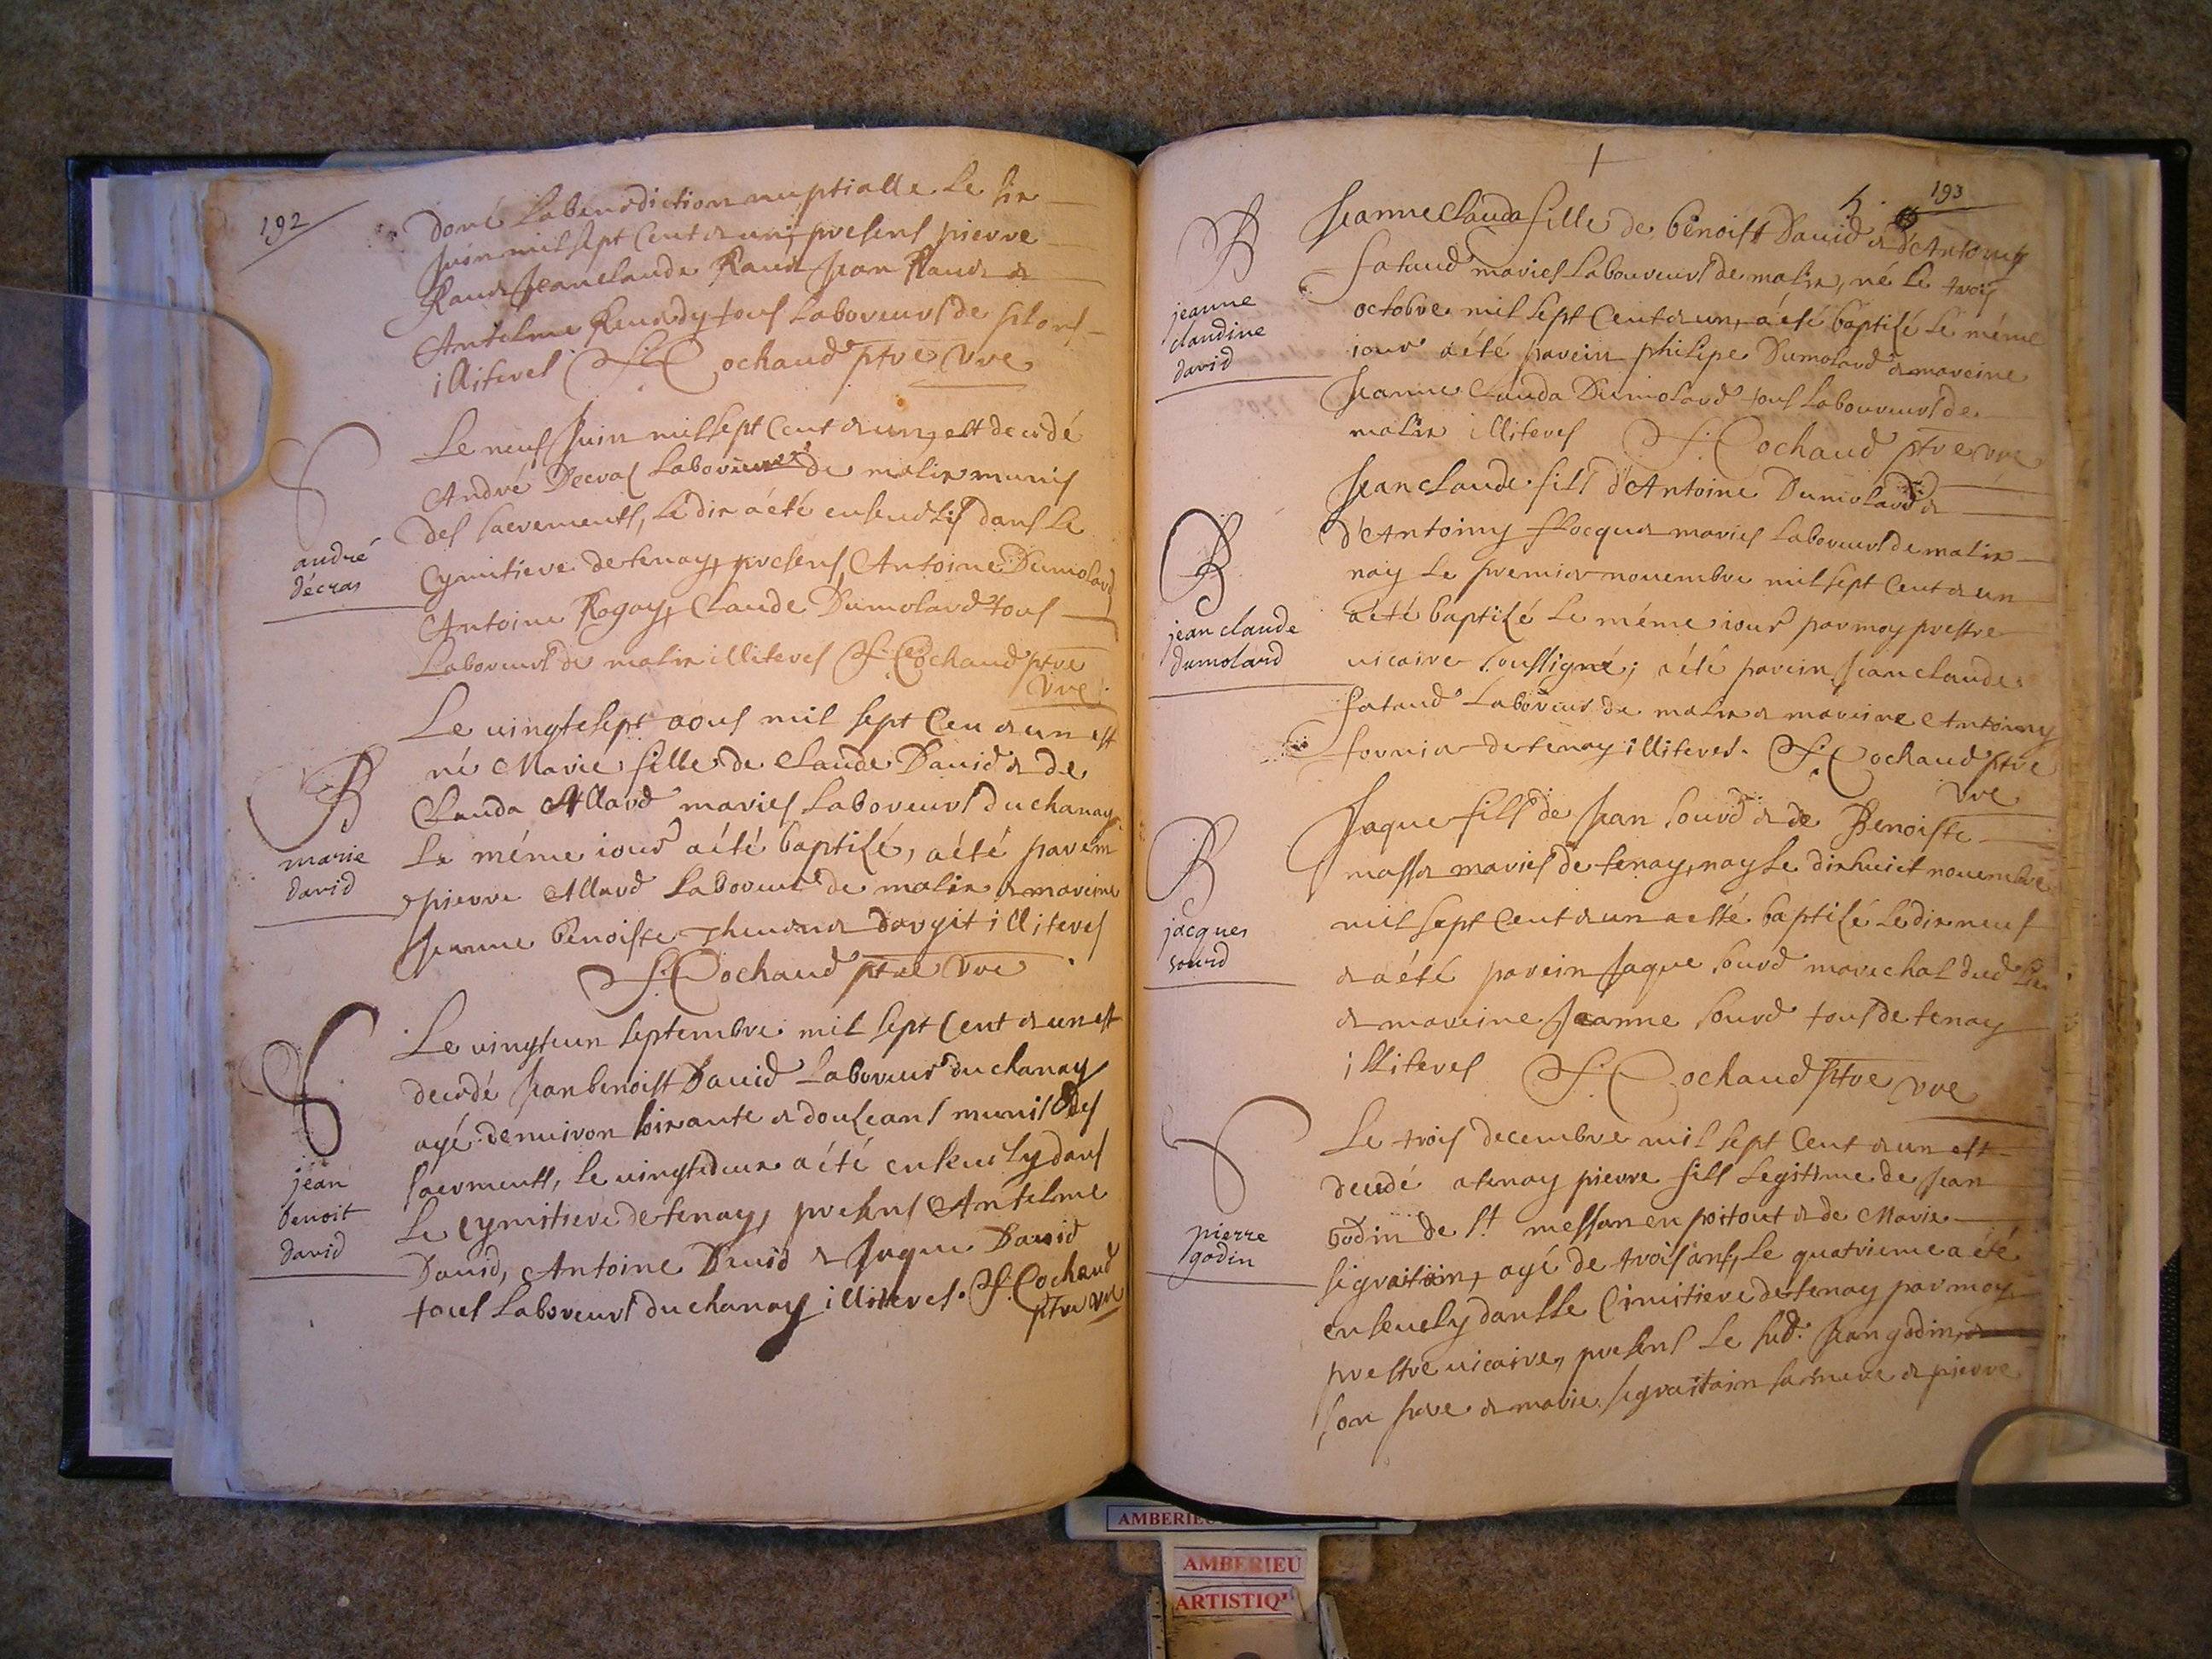 192
doné La benediction nuptialle Le six
Juin mil sept Cent & un; presens pierre
Raud Jean Claude Raud Jean Raud &
Antelme tous Laboureurs de
illiteres F. Cochaud ptre vre
Le neuf Juin mil sept Cent & un, est decedé
André Decras Laboureur de malix munis
des sacrements, Le dix a été enseuelis dans Le
Cymitiere de tenay, presens Antoine Dumolard
Antoine Rogay, Claude Dumolard tous
Laboreurs de malix illiteres F. Cochaud ptre
vre
andré
décras
Le uingtesept aous mil sept Cen & un est
né Marie fille de Claude Dauid & de
Clauda Allard mariés Laboreurs du chanay
Le méme iour a été baptisé, a été parein
pierre Allard Laboreur de malix & mareine
Jeanne benoiste d'argit illiteres
F. Cochaud ptre vre
marie
david
Le uingteun septembre mil sept Cent & un est
decedé Jean benoist Dauid Laboreur du chanay
agé denuiron soixante & douse ans munis des
sacrments, Le uingtedeux a été enseuely dans
Le Cymitiere de tenay, presens Antelme
Dauid, Antoine Dauid & Jaque Dauid
tous Laboreurs du chanay illiteres. F. Cochaud
ptre vre
jean
benoit
david
193
Jeanne Clauda fille de benoist Dauid & d'Antoiny
fataud mariés Laboureurs de malix, né Le trois
octobre mil sept Cent & un, a été baptisé Le méme
iour a été parein philipe Dumolard & mareine
Jeanne Clauda Dumolard tous Laboureurs de
malix illiteres F. Cochaud ptre vre
jeanne
claudine
david
Jean Claude fils d'Antoine Dumolard &
d'Antoiny mariés Laboreurs de malix
nay Le premier nouembre mil sept Cent & un
a été baptizé Le méme iour par moy prestre
uicaire soussigné; a été parein Jean Claude
fataud Laboreur de malix & mareine Antoiny
fornier de tenay illiteres. F. Cochaud ptre
vre
jean claude
dumolard
Jaque fils de Jean Sourd & de Benoiste
masson mariés de tenay, nay Le dixhuict nouembre
mil sept Cent & un a esté baptisé Le dix neuf
& a été parein Jaque Sourd marechal dud Lieu
& mareine Jeanne Sourd tous de tenay
illiteres F. Cochaud ptre vre
jacques
sourd
Le trois decembre mil sept Cent & un est
decedé a tenay pierre fils Legitime de Jean
godin de St messan en poitout & de Marie
sigraitain, agé de trois ans, Le quatrieme a été
enseuely dans Le Cimitiere de tenay par moy
prestre uicaire, presens Le sud. Jean godin
son pere & marie sigraitain sa mere & pierre
pierre
godin
AMBERIEU
AMBERIEU
ARTISTIQU